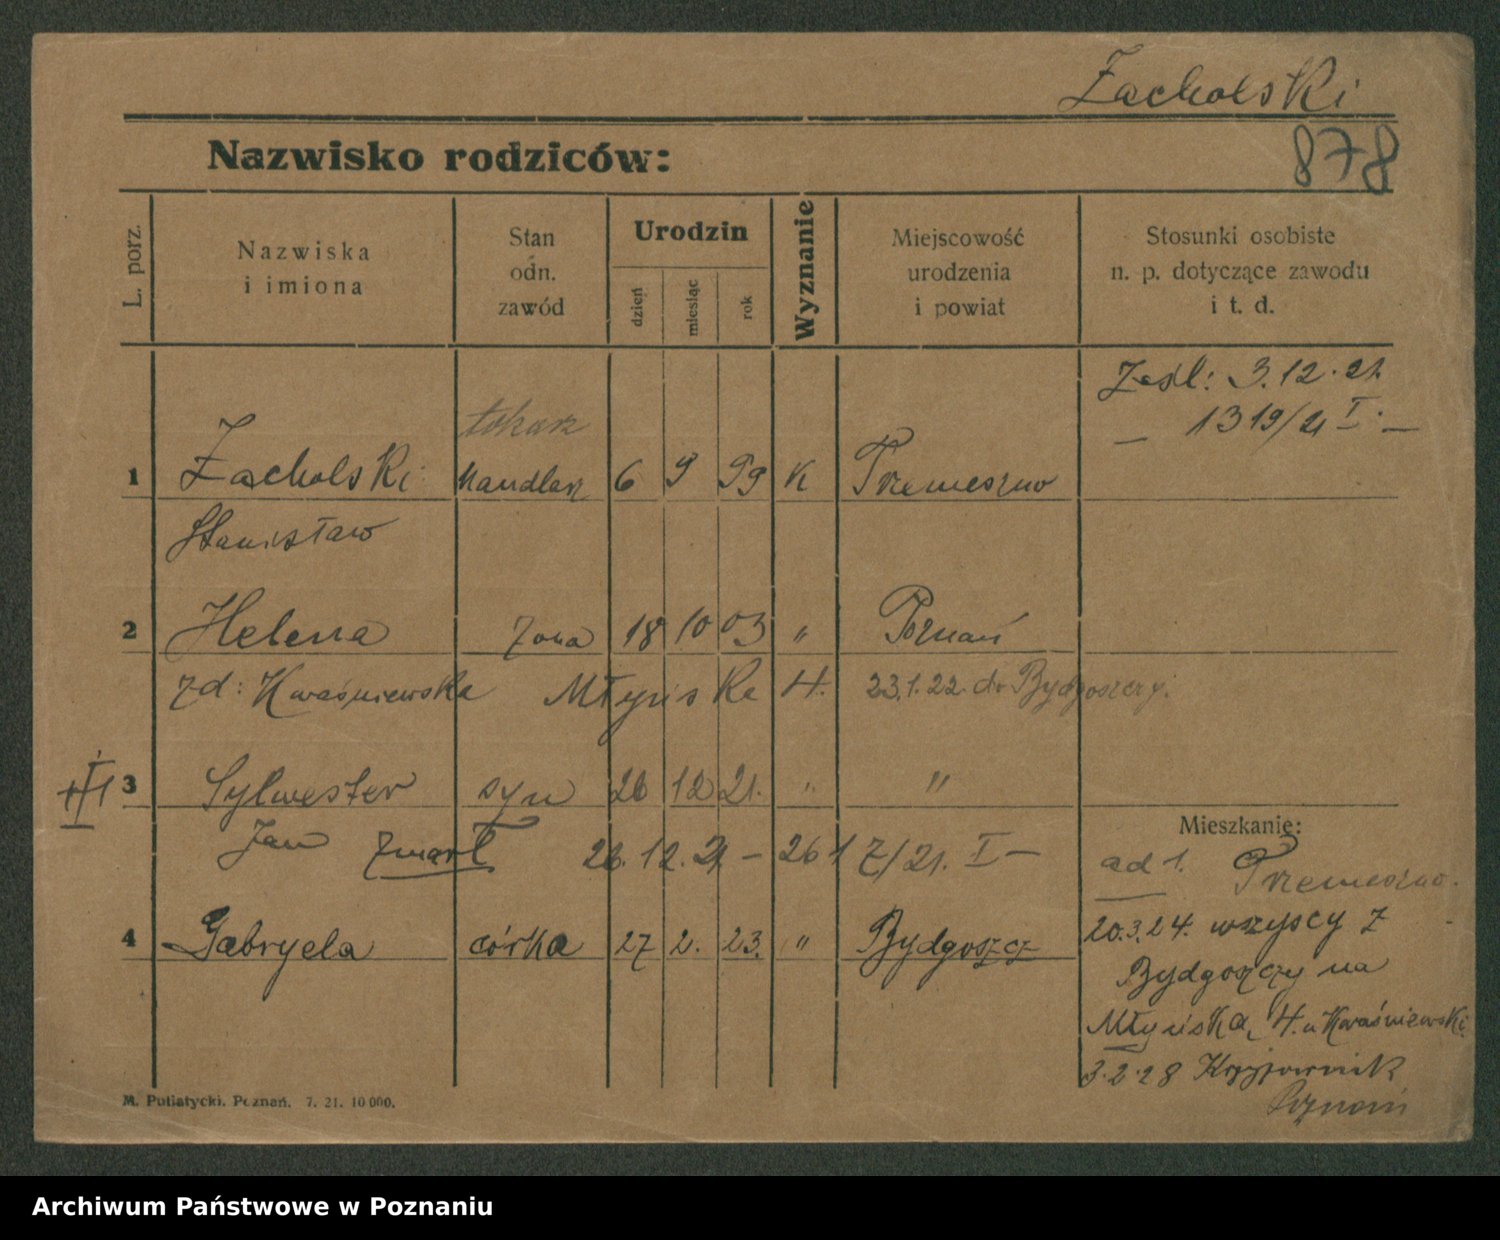 Zacholski
878
Nazwisko rodziców:
L. porz.
Nazwiska
i imiona
Stan
odn.
zawód
Urodzin
dzień
miesiąc
rok
Wyznanie
Miejscowość
urodzenia
i powiat
Stosunki osobiste
n. p. dotyczące zawodu
i t. d.
3.12.21.
— 1319/21 I. —
tokarz
1 Zacholski handlarz 6 9 99 K Trzemeszno
Stanisław
2 Helena żona 18 10 03 " Poznań
zd: Kwaśniewska Młyńska 4. 23.1.22. do Bydgoszczy.
3 Sylwester syn 26 12 21. " "
Jan zmarł 26.12.21 — 2617/21. I —
Mieszkanie:
ad 1. Trzemeszno.
4 Gabryela córka 27 2. 23. " Bydgoszcz
20.3.24. wszyscy z
Bydgoszczy na
Młyńska 4. u Kwaśniewski
3.2.28
Poznań
M. Putiatycki. Poznań. 7. 21. 10 000.
Archiwum Państwowe w Poznaniu